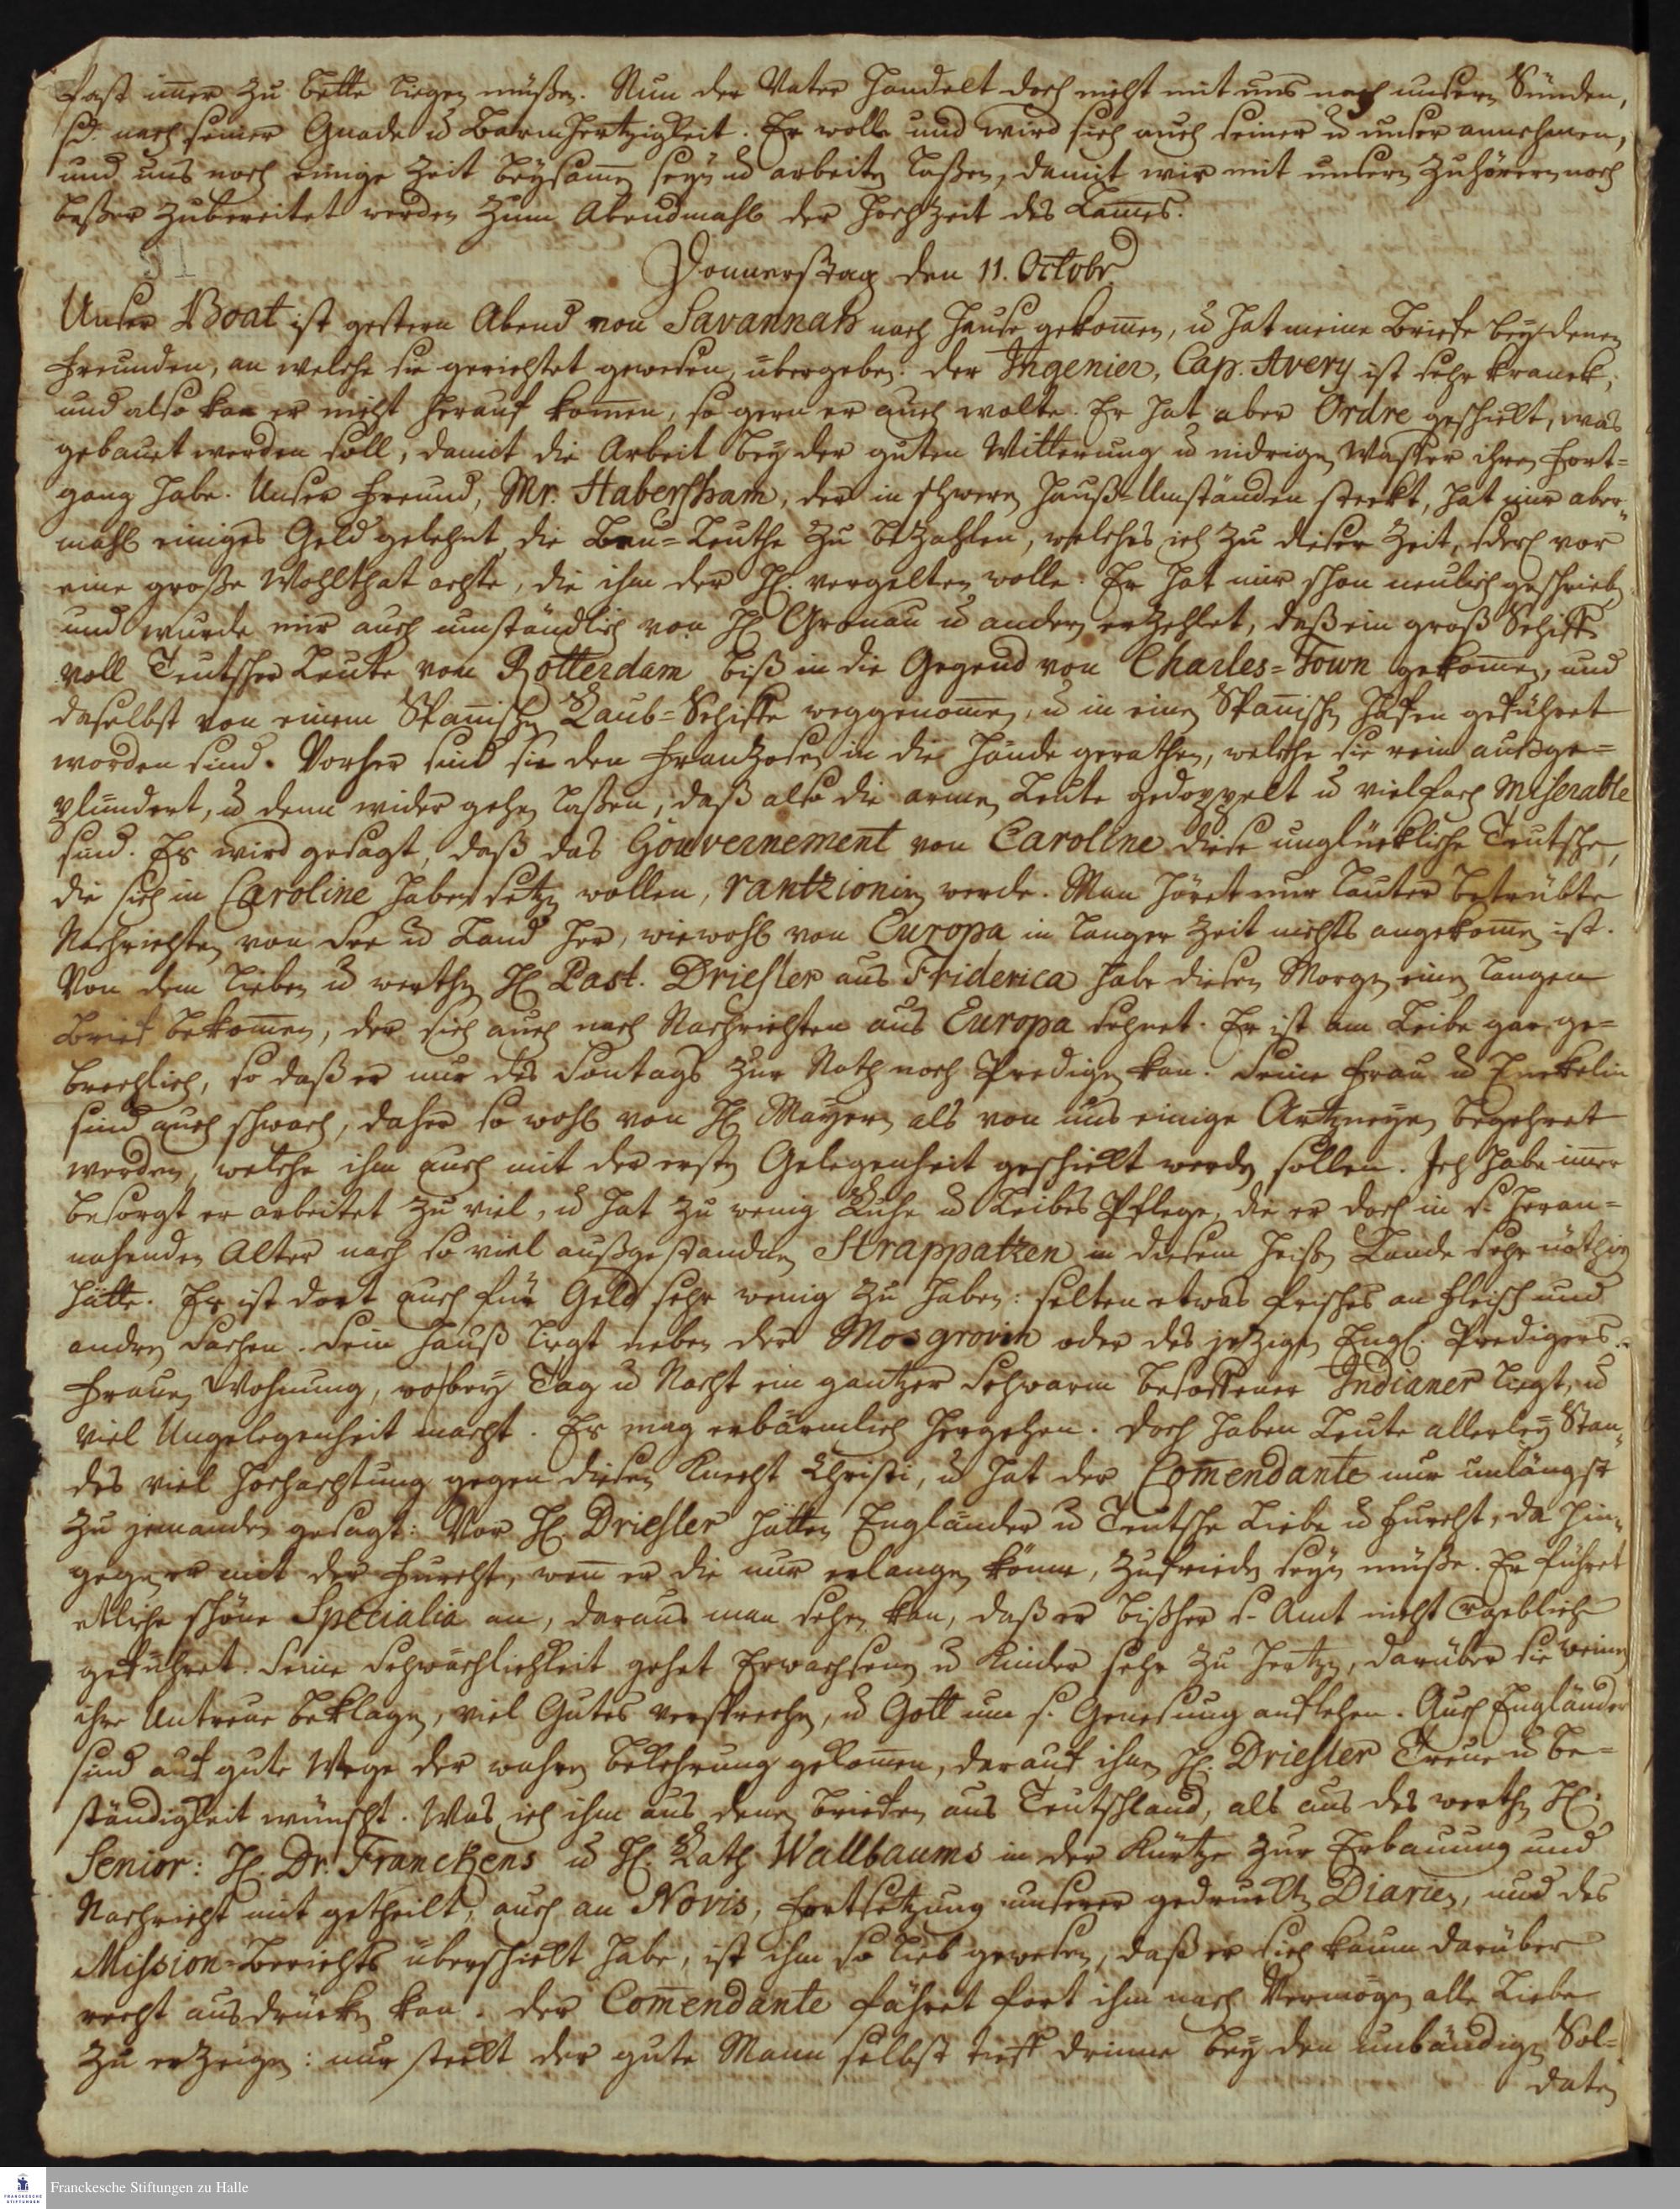 fast im̄er zu bette liegen müßen. Nun der Vater handelt doch nicht mit uns nach unsern Sünden,
sd. nach seiner Gnade u. Barmhertzigkeit. Er wolle und wird sich auch seiner u. unser annehmen,
und uns noch einige Zeit beysam̄en seyn u. arbeiten laßen, damit wir mit unsern Zuhörern noch
beßer zubereitet werden zum Abendmahl der Hochzeit des Lam̄es.
Donnerstag den 11. Octobr
Unser Boat ist gestern Abend von Savannah nach Hause gekom̄en, u. hat meine Briefe bey denen
Freunden, an welche sie gerichtet gewesen, übergeben. Der Ingenier, Cap. Avery ist sehr kranck,
und also kan er nicht herauf kom̄en, so gern er auch wolte. Er hat aber Ordre geschickt, was
gebauet werden soll, damit die Arbeit bey der guten Witterung u. nidrigen Waßer ihren Fort=
gang habe. Unser Freund, Mr. Habersham, der in schweren Hauß-Umständen steckt, hat mir aber=
mahl einiges Geld gelehnt die Bau=Leuthe zu bezahlen, welches ich zu dieser Zeit, vor
eine große Wohlthat achte, die ihm der H. vergelten wolle. Er hat mir schon neulich geschrieben,
und wurde mir auch umständlich von H. Gronau u. andern erzehlet, daß ein groß Schiff
voll Teutscher Leute von Rotterdam biß in die Gegend von Charles=Town gekom̄en, und
daselbst von einem Span̄ischen Raub=Schiffe weggenom̄en, u. in einen Span̄ischen Hafen geführet
worden sind. Vorher sind sie den Frantzosen in die Hände gerathen, welche sie rein außge=
plündert, u. denn wider gehen laßen, daß also die armen Leute gedoppelt u. vielfach miserable
sind. Es wird gesagt, daß das Gouvernement von Caroline diese unglückliche Teutsche,
die sich in Caroline haben setzen wollen, rantzioniren werde. Man höret nur lauter betrübte
Nachrichten von See u. Land her, wiewohl von Europa in langer Zeit nichts angekom̄en ist.
Von dem lieben u. werthen H. Past. Driesler aus Friderica habe diesen Morgen einen langen
Brief bekom̄en, der sich auch nach Nachrichten aus Europa sehnet. Er ist am Leibe gar ge=
brechlich, so daß er nur des Sontags zur Noth noch Predigen kan. Seine Frau u. Enckelin
sind auch schwach, daher so wohl von H. Mayern als von uns einige Artzneyen begehret
werden, welche ihm auch mit der ersten Gelegenheit geschickt werden sollen. Ich habe im̄er
besorgt er arbeitet zu viel, u. hat zu wenig Ruhe u. Leibes Pflege, die er doch in s. heran=
nahenden Alter nach so viel außgestandnen Strappatzen in diesem heißen Lande sehr nöthig
hätte. Es ist dort auch für Geld sehr wenig zu haben: selten etwas frisches an Fleisch und
andren Sachen. Sein Hauß liegt neben der Mosgrovin oder des jetzigen Engl. Predigers
Frauen Wohnung, wobey Tag u. Nacht ein gantzer Schwarm besoffener Indianer liegt, u.
viel Ungelegenheit macht. Es mag erbärmlich hergehen. Doch haben Leute allerley Stan=
des viel Hochachtung gegen diesen Knecht Christi, u. hat der Com̄endante nur unlängst
zu jemanden gesagt: Vor H. Driesler hätten Engländer u. Teutsche Liebe u. Furcht, da hin=
gegen er mit der Furcht, wen̄ er die nur erlangen könne, zufrieden seyn müße. Er führet
etliche schöne Specialia an, daraus man sehen kan, daß er bißher s. Amt nicht vergeblich
geführet. Seine Schwächlichkeit gehet Erwachsenen u. Kinder sehr zu Hertzen, darüber sie weinen
ihre Untreue beklagen, viel Gutes versprechen, u. Gott um s. Genesung anflehen. Auch Engländer
sind auf gute Wege der wahren Bekehrung gekom̄en, darauf ihnen H. Driesler Treue u. Be=
ständigkeit wünscht. Was ich ihm aus denen Briefen aus Teutschland, als aus des werthen H.
Senior: H. Dr. Franckens u. H. Rath Wallbaums in der Kürtze zur Erbauung und
Nachricht mit getheilt, auch an Novis, Fortsetzung unserer gedruckten Diarien, und des
Mission=Berichts überschickt habe, ist ihm so lieb gewesen, daß er sich kaum darüber
recht ausdrücken kan. Der Com̄endante fähret fort ihm nach Vermögen alle Liebe
zu erzeigen: nur steckt der gute Mann selbst tieff drinne bey den unbändigen Sol=
daten
Franckesche Stiftungen zu Halle
FRANCKESCHE
STIFTUNGEN